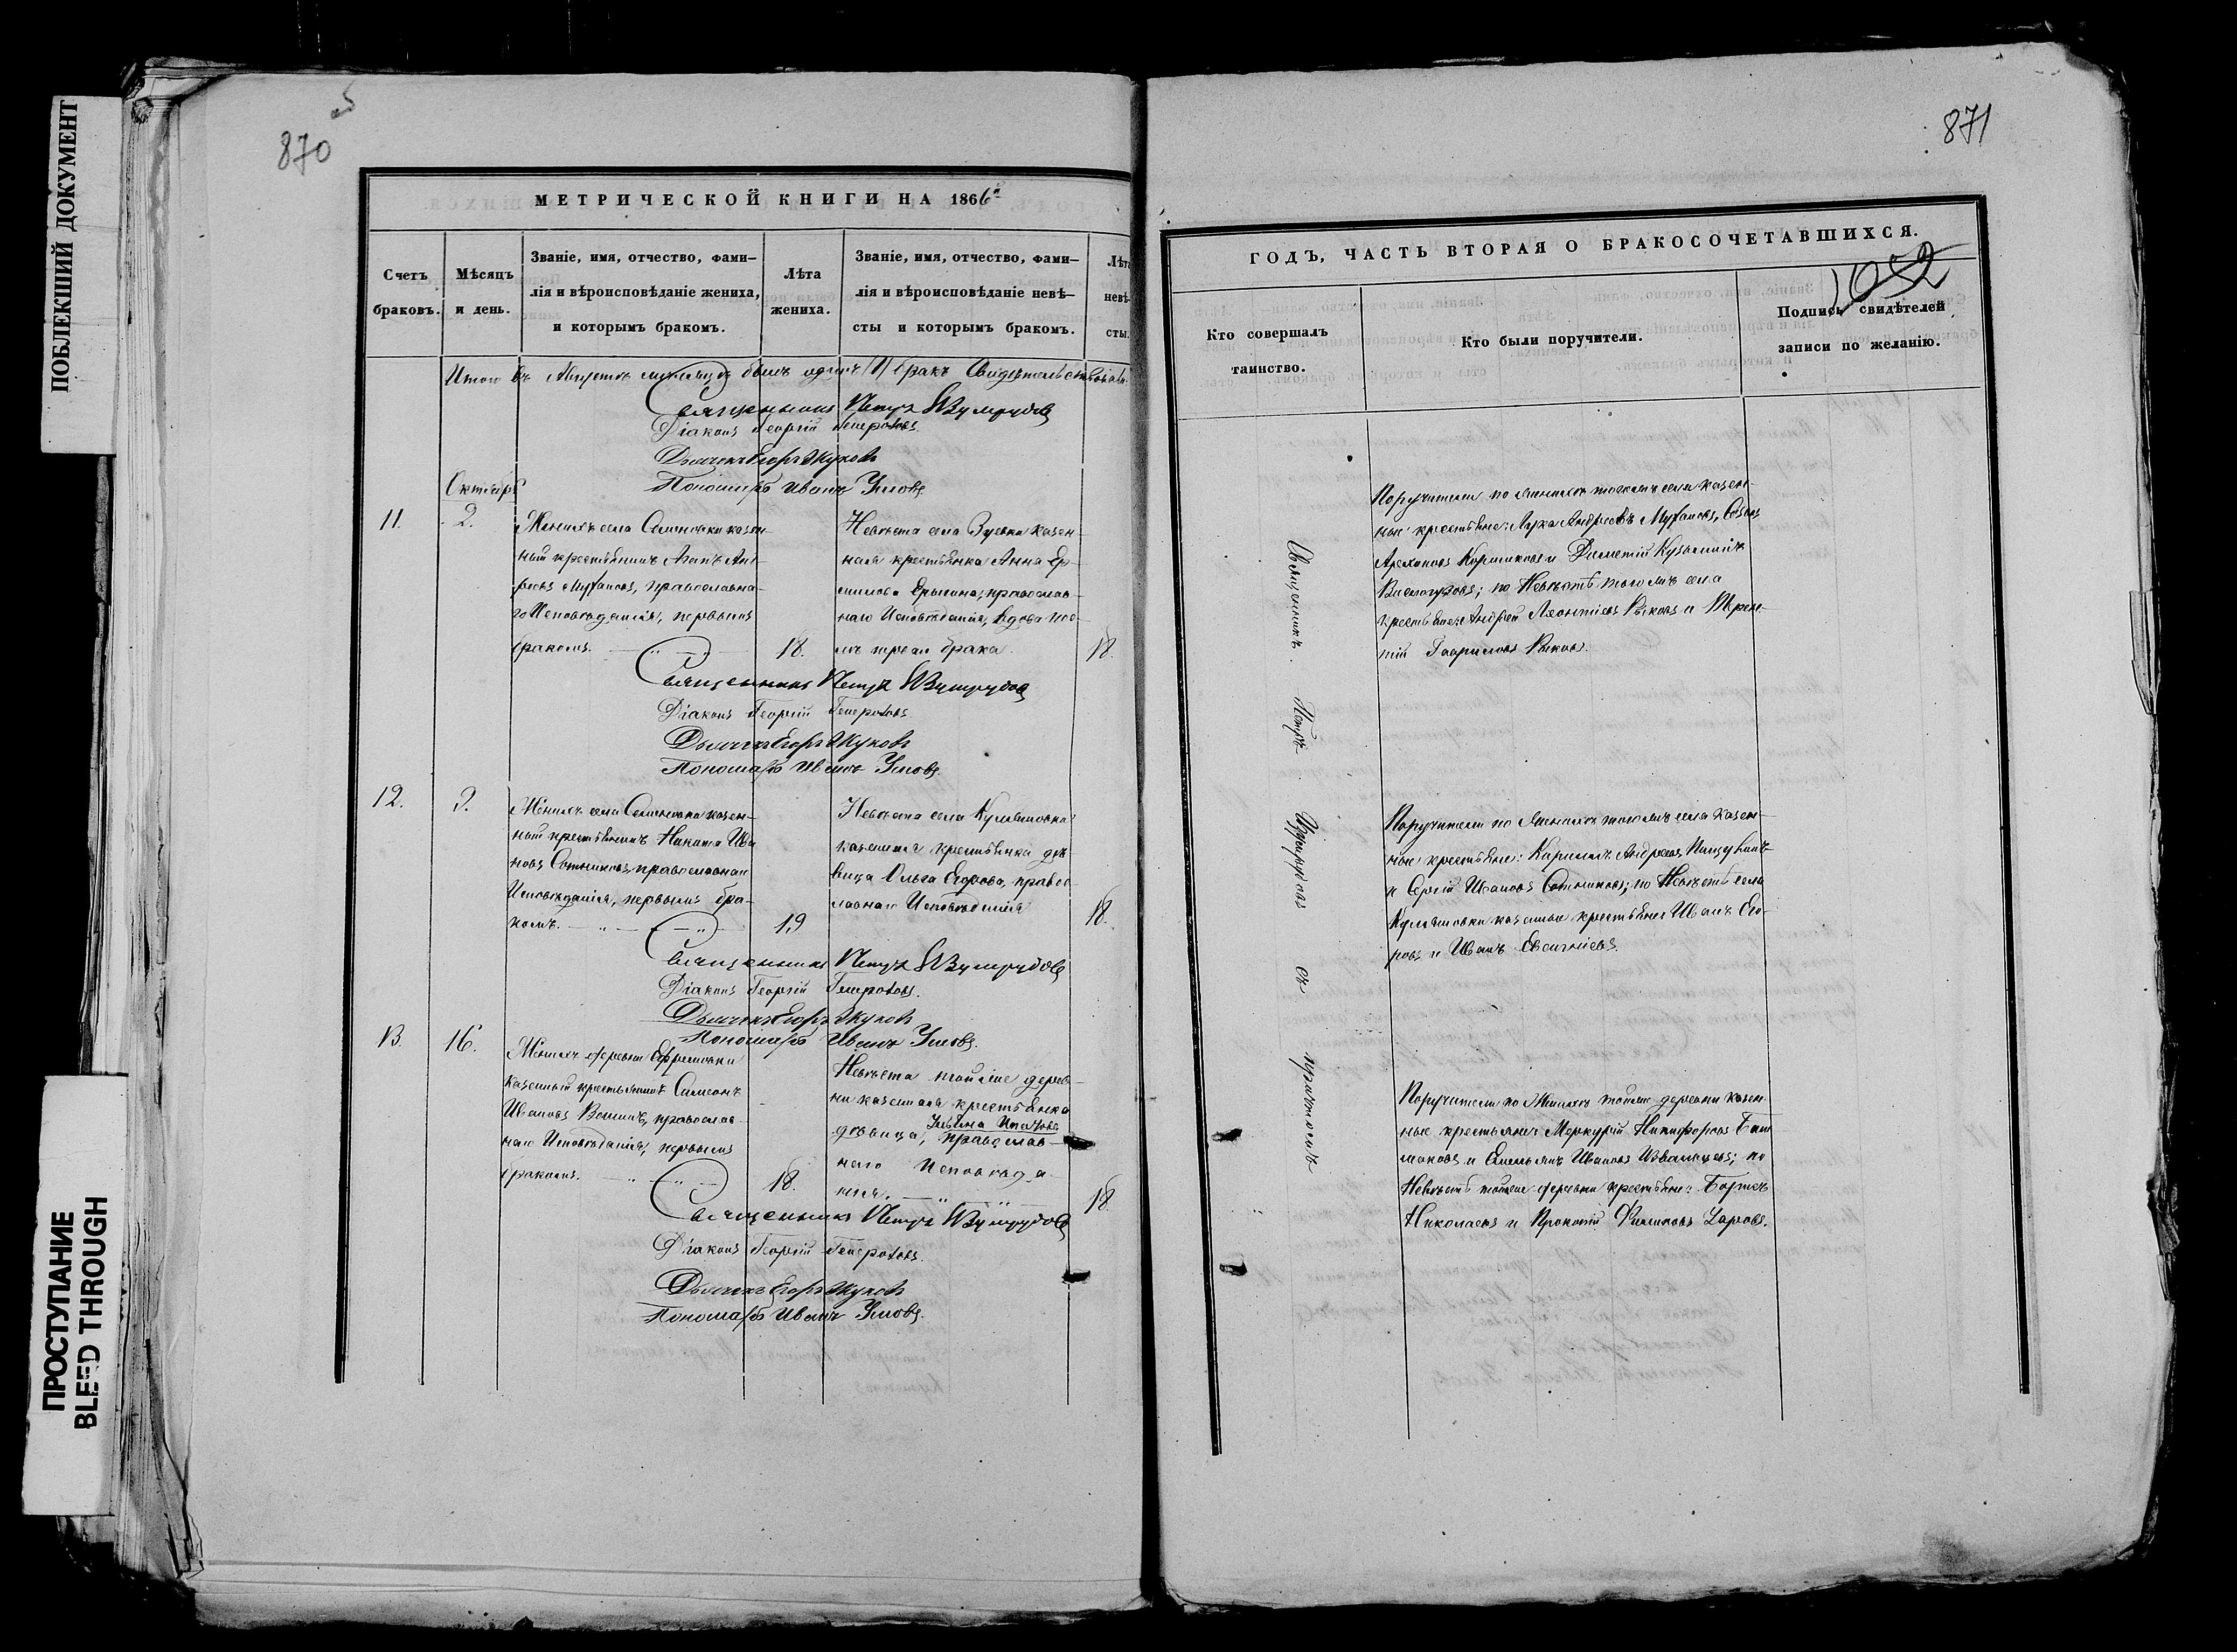 ПОБЛЕКШИЙ ДОКУМЕНТ
ПРОСТУПАНИЕ
BLEED THROUGH
870 об
МЕТРИЧЕСКОЙ КНИГИ НА 1866й
Счетъ браковъ.
Мѣсяцъ и день.
Званіе, имя, отчество, фами-
лія и вѣроисповѣданіе жениха,
и которымъ бракомъ.
Лѣта жениха.
Званіе, имя, отчество, фами-
лія и вѣроисповѣданіе невѣ-
сты и которымъ бракомъ.
Лѣта невѣ-
сты.
Итого въ Августѣ мѣсяцѣ былъ одинъ (1) бракъ
Священникъ Петръ Изумрудовъ
Діаконъ Георгій
Дьячекъ Егоръ Жуковъ
Пономарь Иванъ Умовъ
Октябрь
11.
2.
Женихъ села казен-
ный крестьянинъ
православна-
го Исповѣданія, первымъ
бракомъ.
18.
Невѣста села Зуевки казен-
ная крестьянка Анна Ер-
милова православ-
наго Исповѣданія, вдова
брака
18.
Священникъ Петръ Изумрудовъ
Діаконъ Георгій
Дьячекъ Егоръ Жуковъ
Пономарь Иванъ Умовъ.
12.
9.
Женихъ села казен-
ный крестьянинъ Никита Ива
новъ Сотниковъ, православнаго
Исповѣданія, первымъ бра-
комъ.
19
Невѣста села
казенная крестьянка дѣ-
вица Ольга Егорова, правос-
лавнаго Исповѣданія
18.
Священникъ Петръ Изумрудовъ
Діаконъ Георгій
Дьячекъ Егоръ Жуковъ
Пономарь Иванъ Умовъ.
13.
16.
Женихъ деревни Ефремовки
казенный крестьянинъ Симеонъ
Ивановъ православ-
наго Исповѣданія, первымъ
бракомъ.
18.
Невѣста тойже дерев-
ни казенная крестьянка
дѣвица, православ-
наго Исповѣда-
нія.
18.
Священникъ Петръ Изумрудовъ
Діаконъ Георгій
Дьячекъ Егоръ Жуковъ
Пономарь Иванъ Умовъ.
871
ГОДЪ, ЧАСТЬ ВТОРАЯ О БРАКОСОЧЕТАВШИХСЯ.
1052
Кто совершалъ
таинство.
Кто были поручители.
Подпись свидѣтелей
записи по желанію.
Священникъ Петръ Изумрудовъ съ причтомъ
Поручители по женихѣ тогожъ села казен-
ные крестьяне: Лука Андреевъ
и Димитрій Кузьминъ
по Невѣстѣ тогожъ села
крестьяне: Андрей Леонтіевъ Рыковъ и Терен-
тій Гавриловъ Рыковъ.
Поручители по женихѣ тогожъ села казен-
ные крестьяне: Кириллъ Андреевъ
и Сергій Ивановъ Сотниковъ; по Невѣстѣ села
казенные крестьяне Иванъ Его-
ровъ и Иванъ Евсигніевъ.
Поручители по Женихѣ тойже деревни казен-
ные крестьяне Меркурій Никифоровъ Баш-
маковъ и Емельянъ Ивановъ по
Невѣстѣ тойже деревни крестьяне: Борисъ
Николаевъ и Прокопій Филиповъ